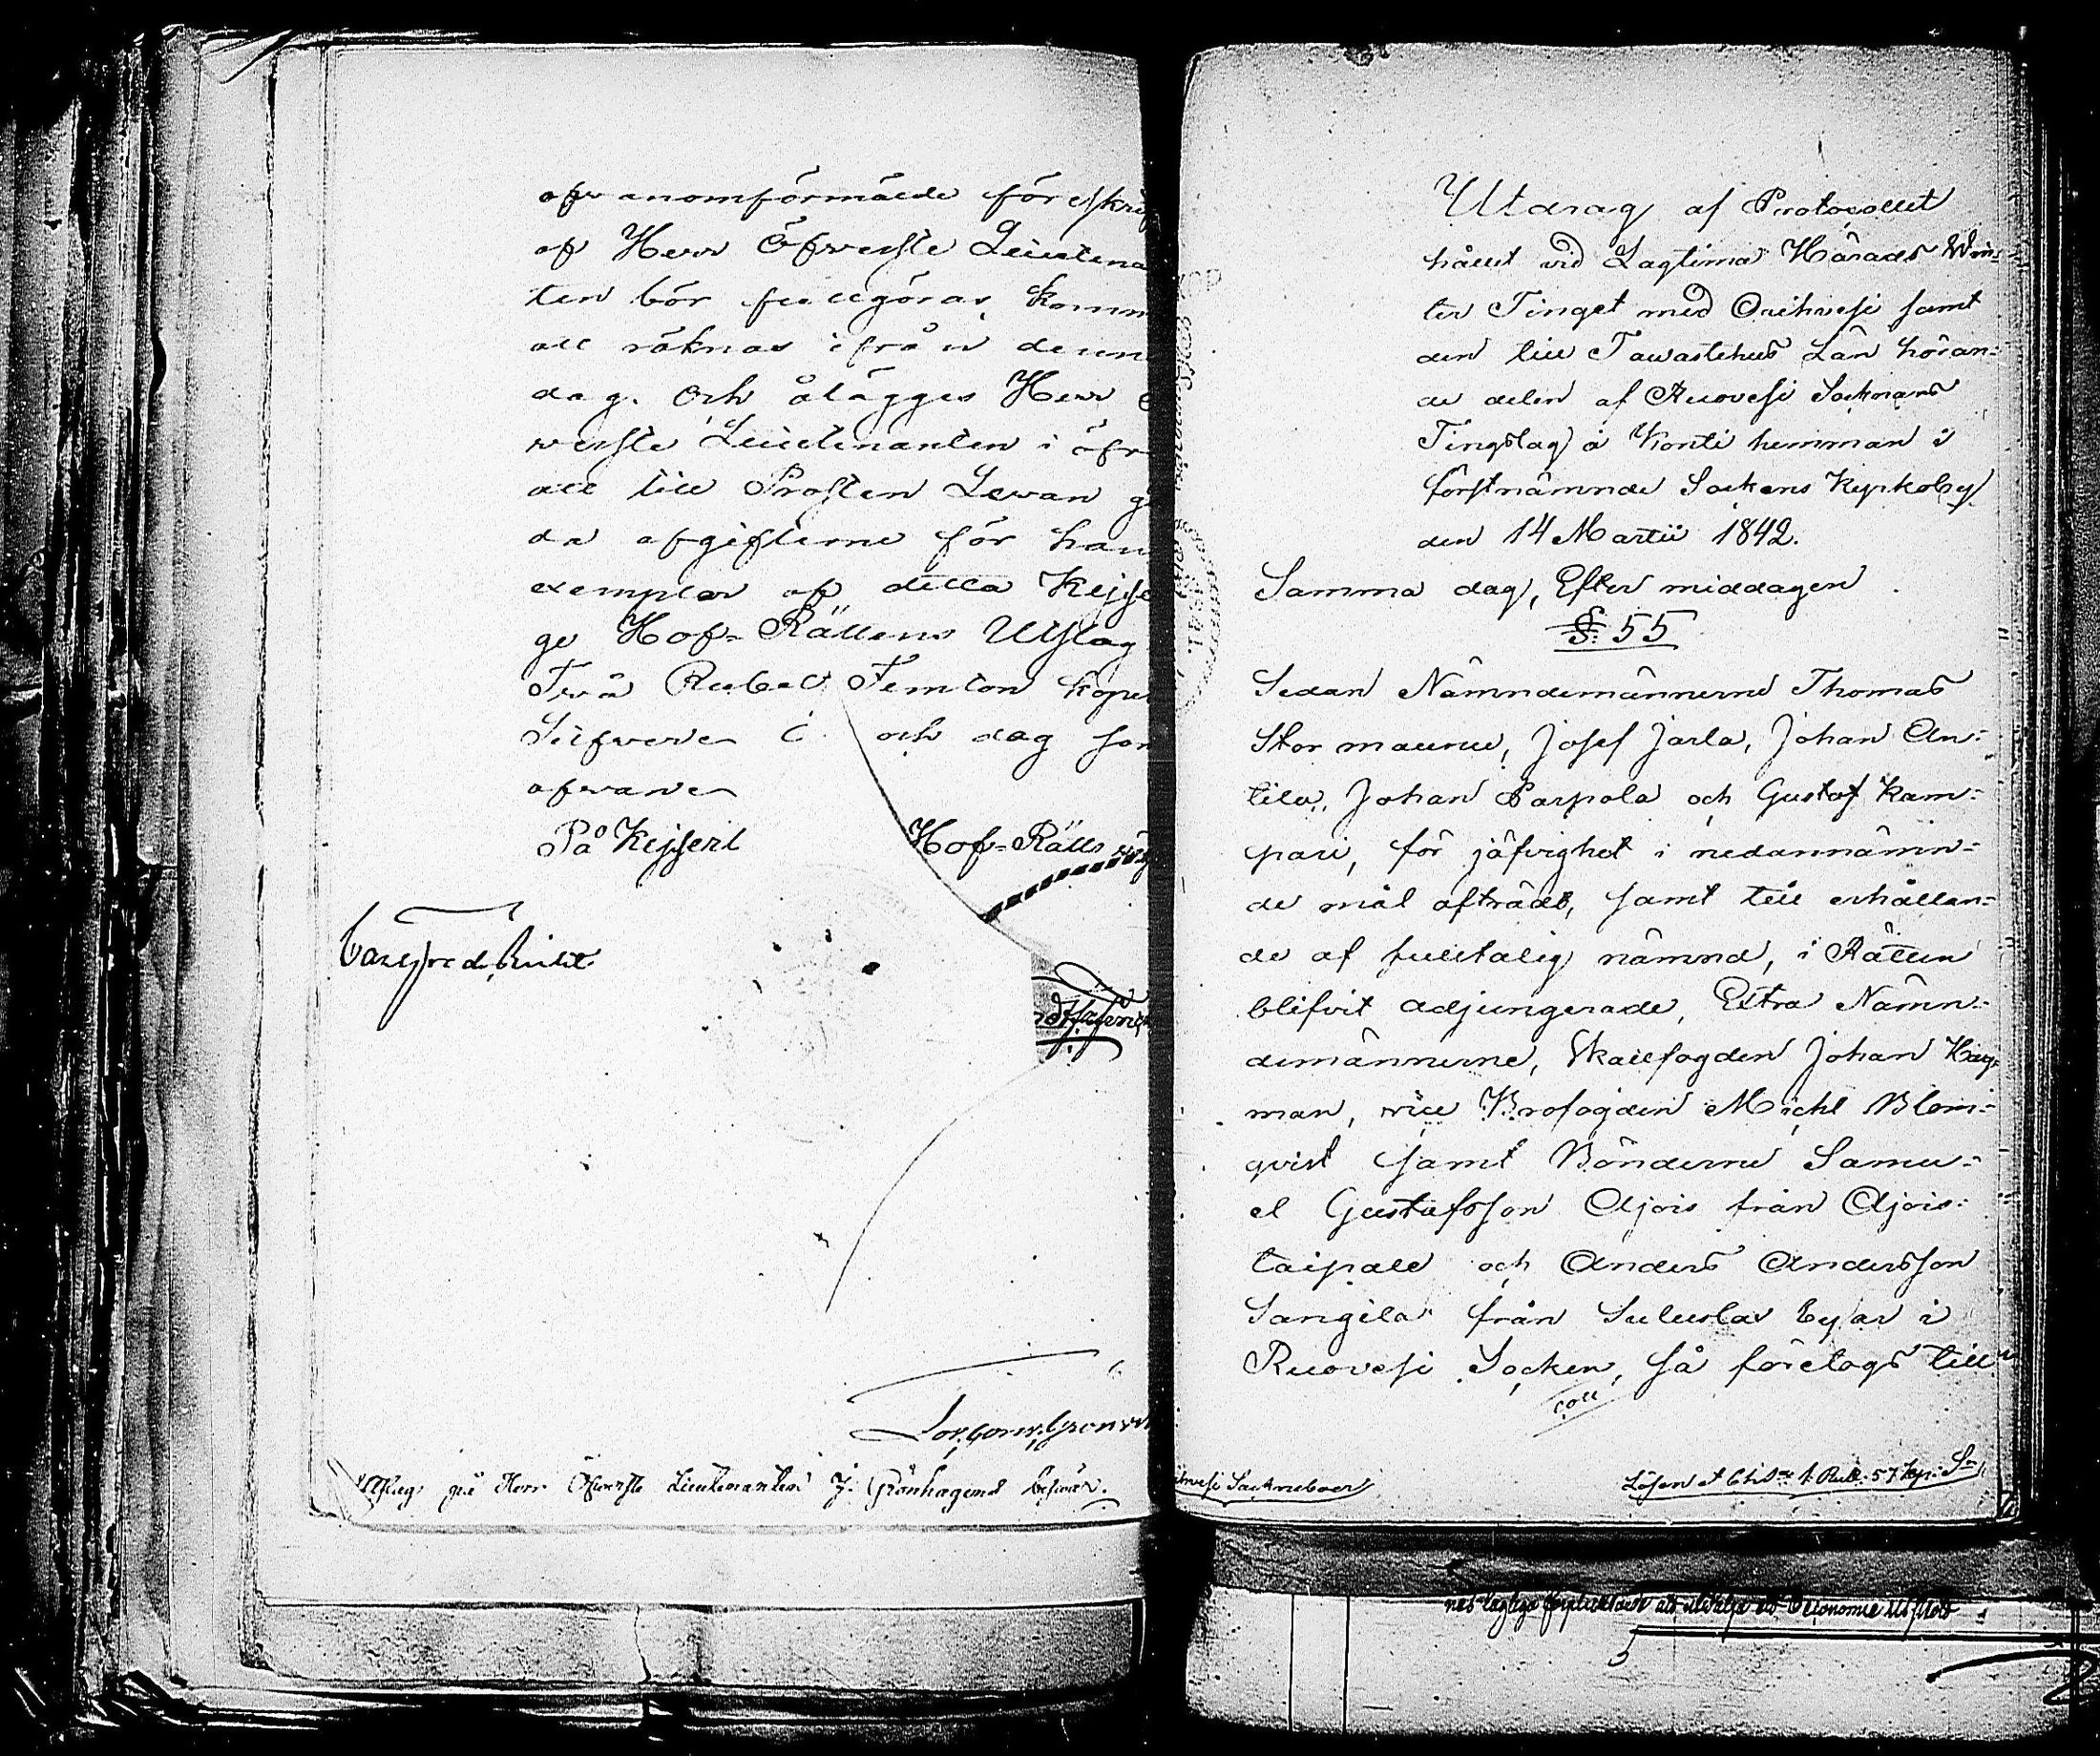 ofvanomförmälde föreskrif
af Herr Öfverste Lieutena
ten bör fullgöras, komm
att räknas ifrån denn
dag. Och ålägges Herr Ö
werste Lieutenanten i öfr
att till Prosten Levan g
da afgifterne för han
exemplar af detta Kejse
ge Hof-Rättens Utslag
Två Rubel Femton kope
Silfver. År och dag som
ofvan.
På Kejserl Hof-Rätts väg
Lor. Corn. Grönvi
Utslag på Herr Öfverste Lieutenanten J. Grönhagens besvär.
Utdrag af Protocollet
hållit vid Lagtima Härads Win-
ter Tinget med Orihvesi samt
den till Tawastehus Län höran-
de delen af Ruovesi Socknars
Tingslag å Konti hemman i
förstnämnde Sockens Kyrkoby
den 14 Martii 1842.
Samma dag, Efter middagen
§. 55
Sedan Nämndemännerne Thomas
Stor maunu, Josef Jarla, Johan An-
tila, Johan Parpola och Gustaf Kam-
pari, för jäfvighet i nedannämn-
de mål afträdt, samt till erhållan-
de af fulltalig nämnd, i Rätten
blifvit adjungerade, Extra Nämn-
demännerne, Skallfogden Johan Hag-
man, vice Brofogden Michl Blom-
qvist samt Bönderne Samu-
el Gustafsson Ajois från Ajois-
taipale och Anders Andersson
Sangila från Sulusla byar i
Ruovesi Socken, så företogs till
coll
ihvesi Sockneboer
Lösen et Chtæ 1. Rub: 57 kop: Sr